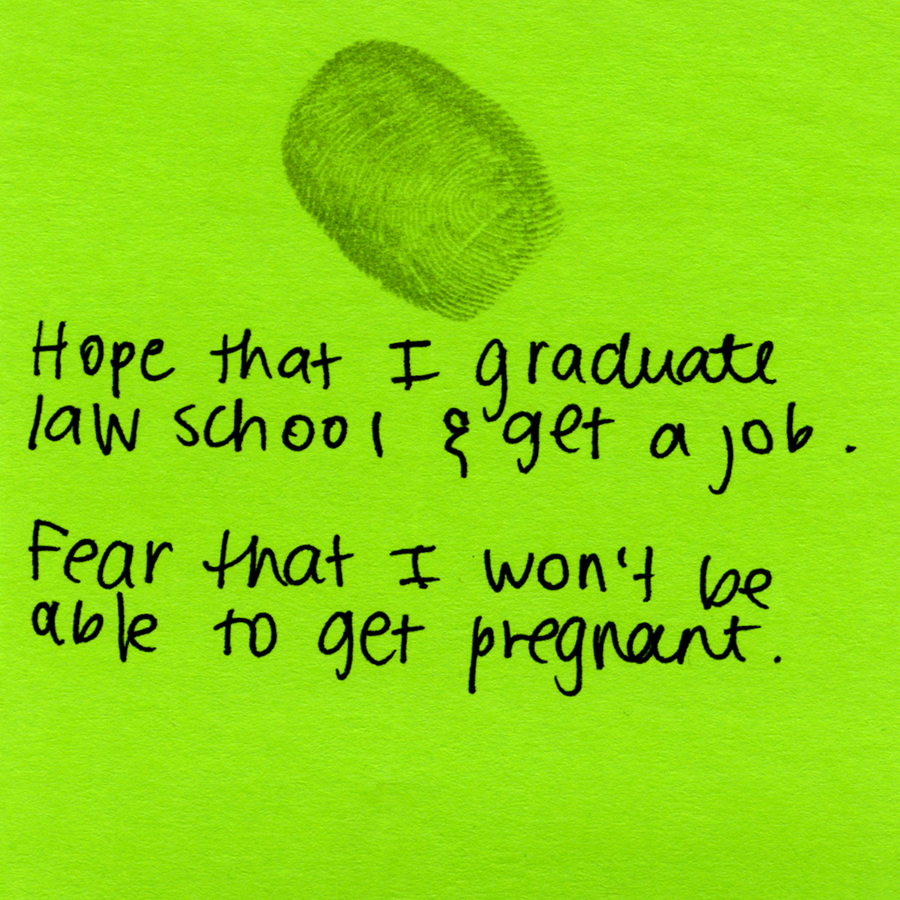 Hope that I graduate
law school & get a job.
Fear that I won't be
able to get pregnant.